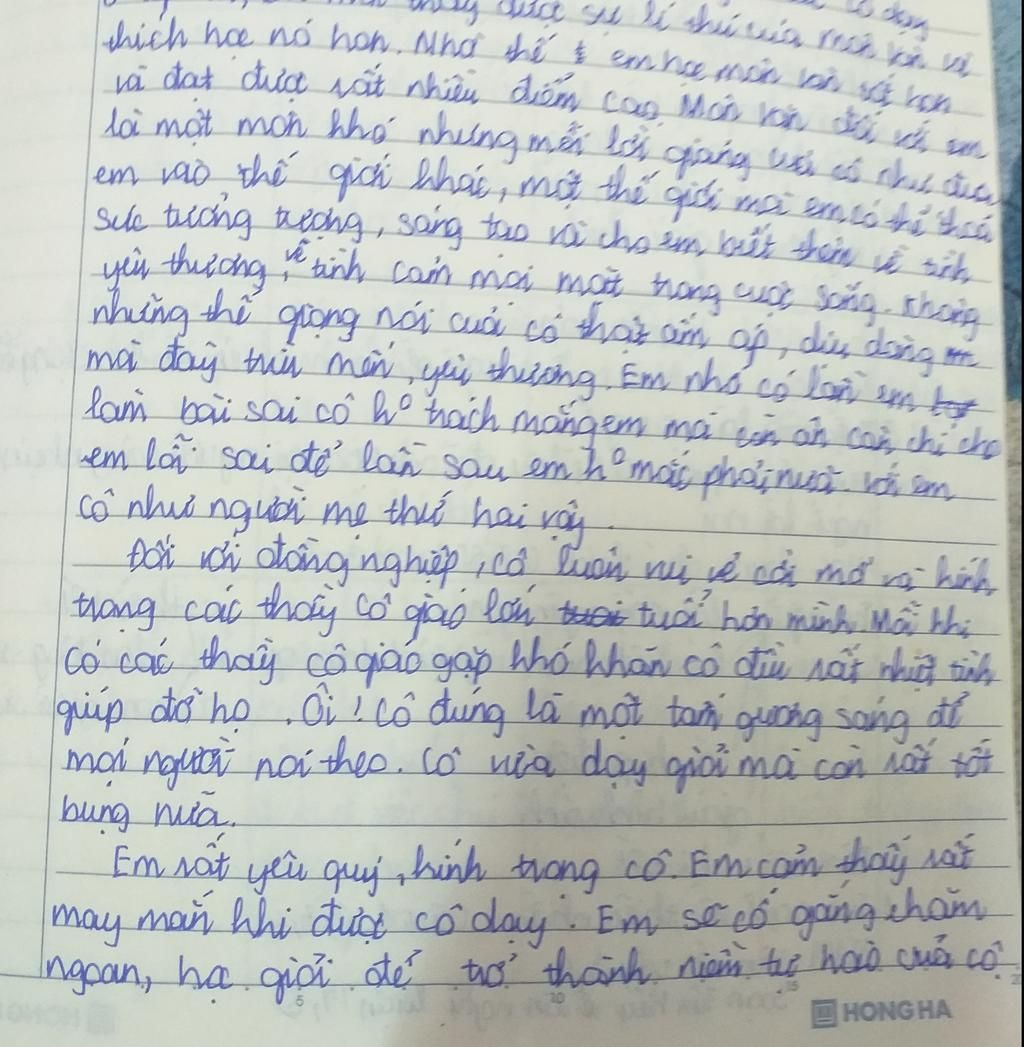 được sự lí thú của môn văn và
thích học nó hơn. Nhờ thế em học môn văn tốt hơn
và đạt được rất nhiều điểm cao. Môn văn đối với em
là một môn khó nhưng mỗi lời giảng của cô như đưa
em vào thế giới khác, một thế giới mà em có thể thoả
sức tưởng tượng, sáng tạo và cho em biết thêm về tình
yêu thương, về tình cảm mọi mặt trong cuộc sống. Không
những thế giọng nói của cô thật ấm áp, dịu dàng
mà đầy trìu mến, yêu thương. Em nhớ có lần em
làm bài sai cô ho trách mắng em mà còn ân cần chỉ cho
em lỗi sai để lần sau em ho mắc phải nữa. Với em
cô như người mẹ thứ hai vậy.
Đối với đồng nghiệp, cô luôn vui vẻ cởi mở và kính
trọng các thầy cô giáo lớn tuổi hơn mình. Mỗi khi
có các thầy cô giáo gặp khó khăn cô đều rất nhiệt tình
giúp đỡ họ. Ôi! Cô đúng là một tấm gương sáng để
mọi người noi theo. Cô vừa dạy giỏi mà còn rất tốt
bụng nữa.
Em rất yêu quý, kính trọng cô. Em cảm thấy rất
may mắn khi được cô dạy. Em sẽ cố gắng chăm
ngoan, học giỏi để trở thành niềm tự hào của cô
5 10 15
HONG HA